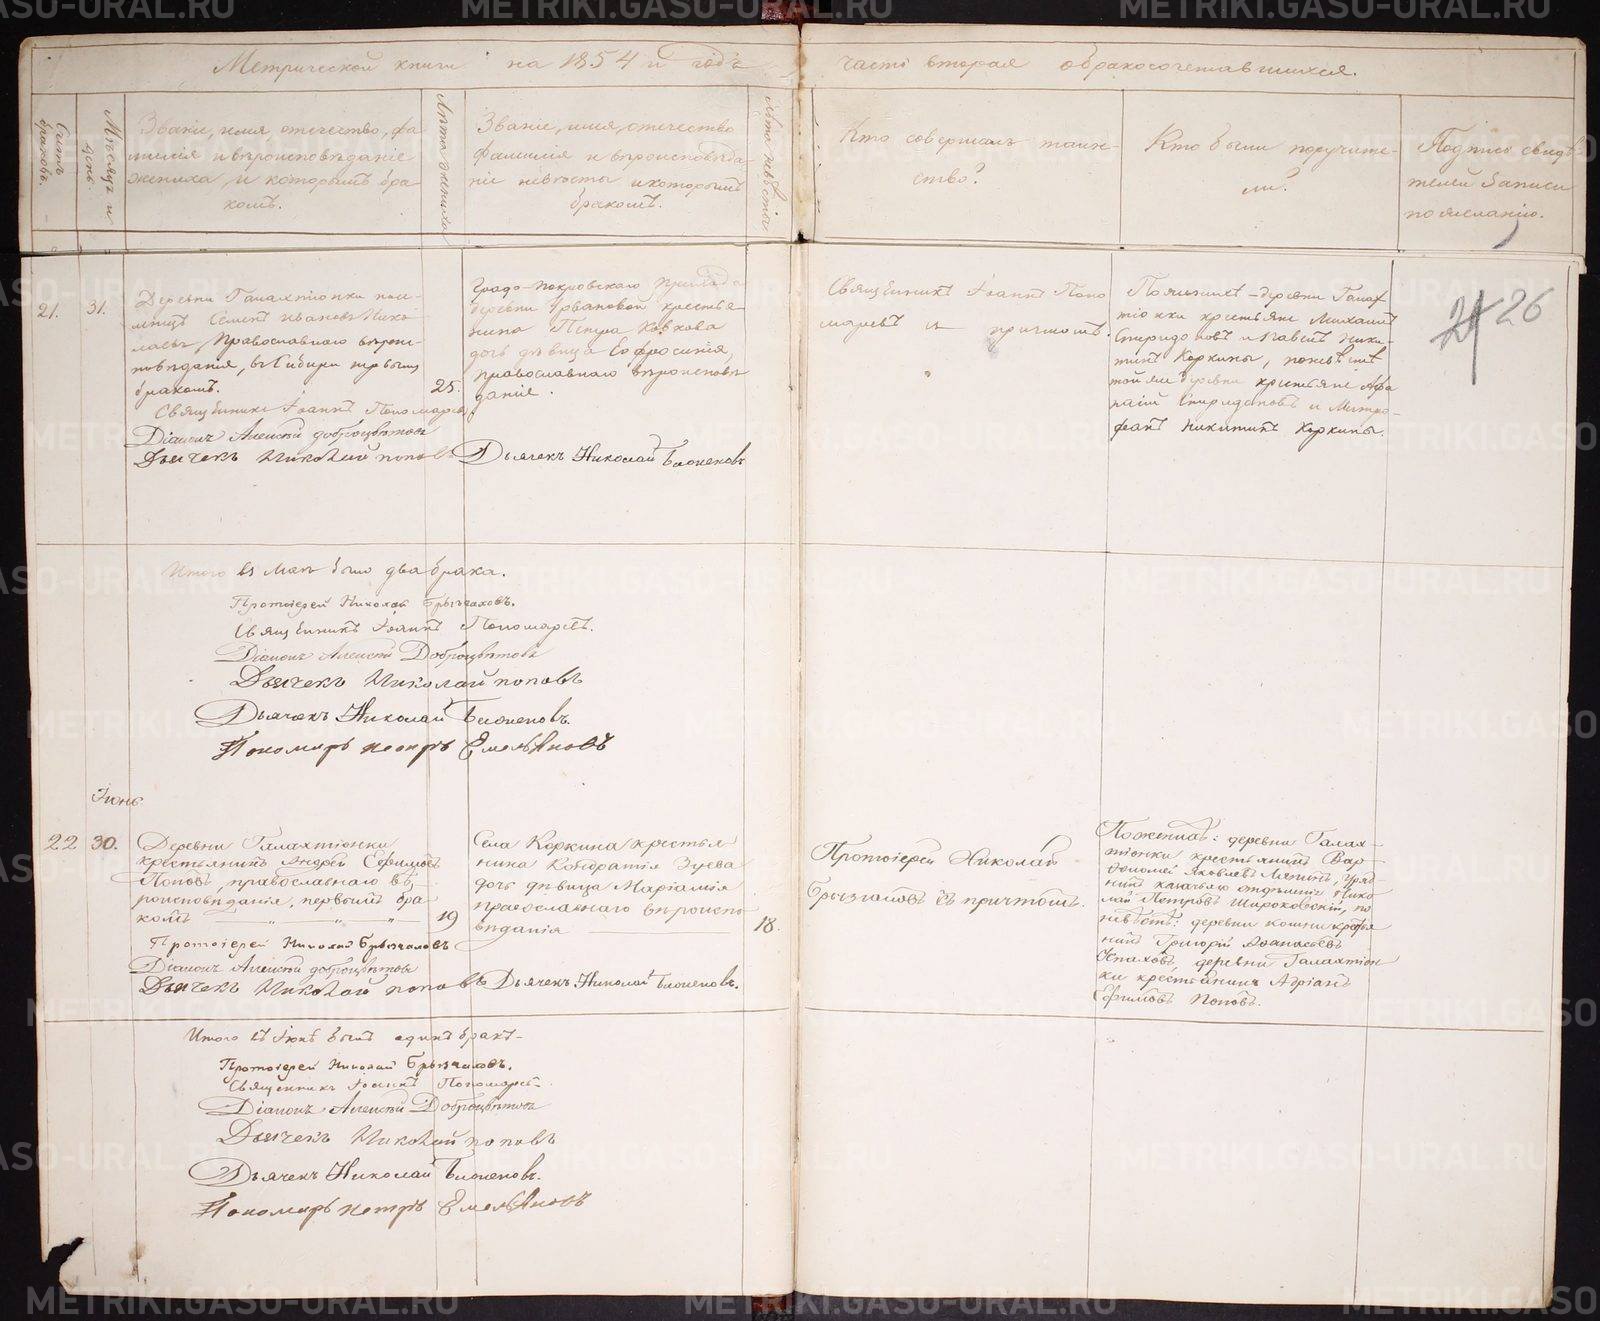 Метрической книги на 1854й годъ часть вторая о бракосочетавшихся.
Счетъ браковъ.
Мѣсяцъ и день.
Званіе, имя, отечество, фа-
милія и вѣроисповѣданіе
жениха, и которымъ бра-
комъ.
Лѣта жениха
Званіе, имя, отечество
фамилія и вѣроисповѣда-
ніе невѣсты и которымъ
бракомъ.
Лѣта невѣсты
Кто совершалъ таин-
ство?
Кто были поручите-
ли?
Подпись свидѣ-
телей записи
по желанію.
21.
31.
Деревни Галахтіонки
Семенъ Ивановъ
православнаго вѣрои-
повѣданія, первымъ
бракомъ.
25.
Священникъ Іоаннъ Пономаревъ
Діаконъ Алексѣй Доброцвѣтовъ
Дьячекъ Николай Поповъ
Градо-Покровскаго прихода
деревни крестья
нина Петра
дочь дѣвица Евфросинія,
православнаго вѣроисповѣ
данія.
Дьячекъ Николай
Священникъ Іоаннъ Поно
маревъ съ причтомъ.
По женихѣ - деревни Галах
тіонки крестьяне Михаилъ
Спиридоновъ и Ники-
тинъ Коркины, по невѣстѣ
той же деревни крестьяне Афа
насій Спиридоновъ и Митро-
фанъ Никитинъ Коркины.
26
Итого въ Маѣ было два брака.
Протоіерей Николай
Священникъ Іоаннъ Пономаревъ.
Діаконъ Алексѣй Доброцвѣтовъ
Дьячекъ Николай Поповъ
Дьячекъ Николай
Пономарь Петръ Емельяновъ
Іюнь
22
30.
Деревни Галахтіонки
крестьянинъ Андрей Ефимовъ
Поповъ, православнаго вѣ-
роисповѣданія, первымъ бра
комъ
19
Протоіерей Николай
Діаконъ Алексѣй Доброцвѣтовъ
Дьячекъ Николай Поповъ
Села Коркина крестья
нина Кондратія Зуева
дочь дѣвица Маріамія
православнаго вѣроиспо
вѣданія
18.
Дьячекъ Николай
Протоіерей Николай
съ причтомъ.
По женихѣ: деревни Галах-
тіонки, крестьянинъ Вар-
фоломей Яковлевъ Ляпинъ, уряд
никъ Нико
лай Петровъ Широковскій, по
невѣстѣ: деревни крестья
нинъ Григорій Афанасьевъ
деревни Галахтіон
ки крестьянинъ Адріанъ
Ефимовъ Поповъ.
Итого въ Іюнѣ былъ одинъ бракъ.
Протоіерей Николай
Священникъ Іоаннъ Пономаревъ.
Діаконъ Алексѣй Доброцвѣтовъ
Дьячекъ Николай Поповъ
Дьячекъ Николай
Пономарь Петръ Емельяновъ
METRIKI.GASO-URAL.RU